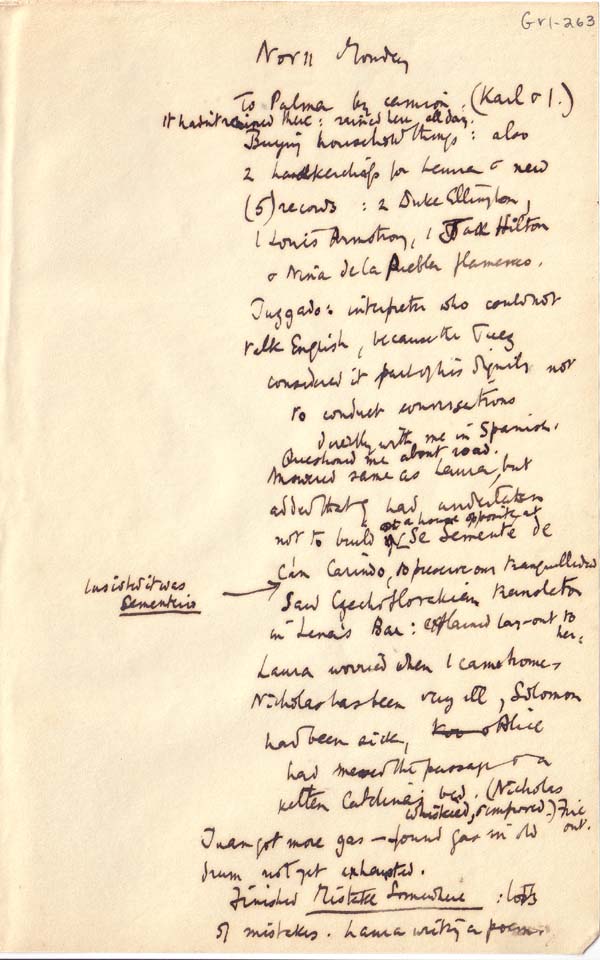 Gr1-263
Nov 11 Monday
To Palma by camion. (Karl & I.)
It hadn't rained there: rained here, all day.
Buying household things: also
2 handkerchiefs for Laura & new
(5) records : 2 Duke Ellington,
1 Louis Armstrong, 1 Jack Hilton
& Nina de la Puebla flamenco.
Juzgado: interpreter who could not
talk English, because the Juez
considered it part of his dignity not
to conduct conversations
directly with me in Spanish.
Questioned me about road.
Answered same as Laura, but
added that I had undertaken
not to build a house opposite at
Se Semente de
C'an Carindo, to preserve our tranquillidad
Insisted it was
Sementerio
Saw Czechoslovakian translator
in Lena's Bar: explained lay-out to
her.
Laura worried when I came home.
Nicholas has been very ill, Solomon
had been sick, & Alice
had messed the passage & a
kitten Catalina's bed. (Nicholas
whiskied, & improved.) Fire
out.
Juan got more gas — found gas in old
drum not yet exhausted.
Finished Mistake Somewhere : lots
of mistakes. Laura writing a poem.